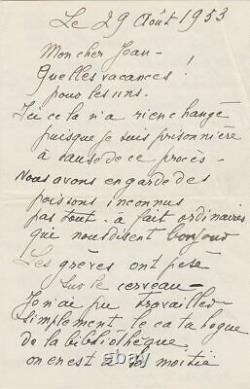 Le 29 Août 1953
Mon cher Jean -
Quelles vacances!
pour les uns.
Ici ce la n'a rien changé
puisque je suis prisonnière
à cause de ce procès -
Nous avons en garde des
poissons inconnus
pas tout - à fait ordinaires
qui nous disent bonjour
Les grèves ont pesé
sur le cerveau -
Je n'ai pu travailler
simplement le catalogue
de la bibliothèque
on en est à la moitié